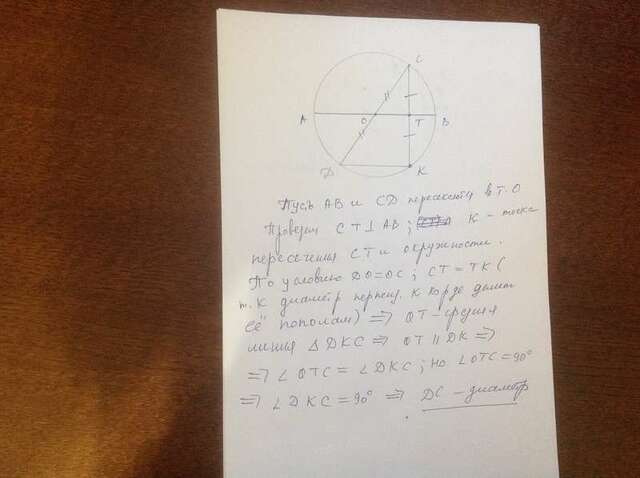 C
A
O
T
B
D
K
Пусть AB и CD пересекаются в т. O
Проведем CT ⊥ AB; K - точка
пересечения CT и окружности.
По условию DO=OC; CT=TK (
т.к диаметр перпен. к хорде делит
её пополам) ⇒ OT-средняя
линия △DKC ⇒ OT || DK ⇒
⇒ ∠OTC = ∠DKC; но ∠OTC=90°
⇒ ∠DKC=90° ⇒ DC - диаметр